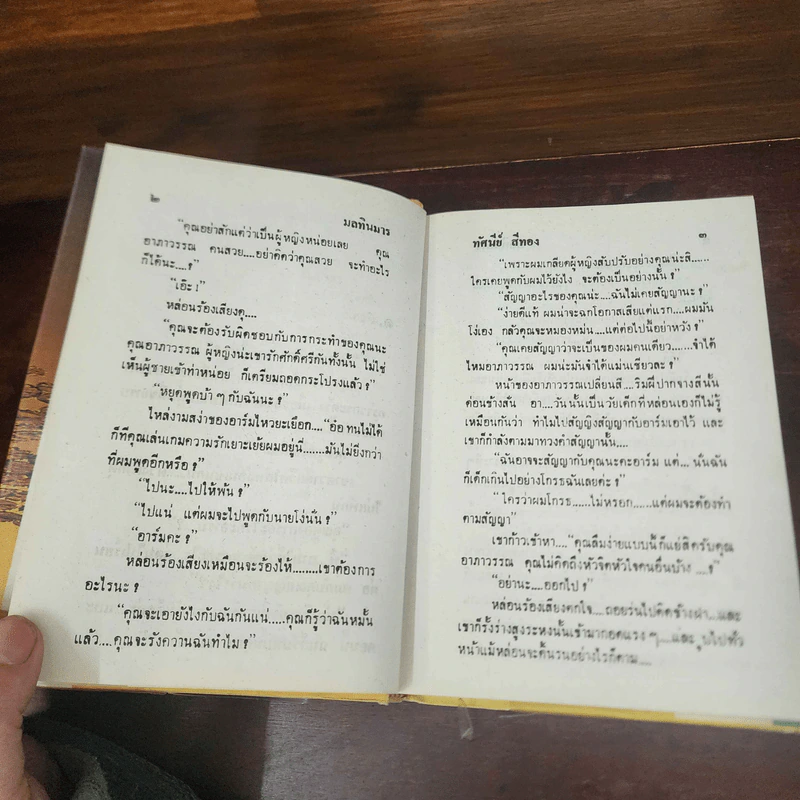 ๒
มลทินมาร
“คุณอย่าสักแต่ว่าเป็นผู้หญิงหน่อยเลย คุณ
อาภาวรรณ คนสวย....อย่าคิดว่าคุณสวย จะทำอะไร
ก็ได้นะ....?”
“เอ๊ะ !”
หล่อนร้องเสียงดุ....
“คุณจะต้องรับผิดชอบกับการกระทำของคุณนะ
คุณอาภาวรรณ ผู้หญิงน่ะเขารักศักดิ์ศรีกันทั้งนั้น ไม่ใช่
เห็นผู้ชายเข้าท่าหน่อย ก็เตรียมถอดกระโปรงแล้ว ?”
“หยุดพูดบ้า ๆ กับฉันนะ ?”
ไหล่งามสง่าของอาร์มไหวยะเยือก....“อ้อ ทนไม่ได้
ก็ทีคุณเล่นเกมความรักเยาะเย้ยผมอยู่นี่.......มันไม่ยิ่งกว่า
ที่ผมพูดอีกหรือ ?”
“ไปนะ....ไปให้พ้น ?”
“ไปแน่ แต่ผมจะไปพูดกับนายโง่นั่น ?”
“อาร์มคะ ?”
หล่อนร้องเสียงเหมือนจะร้องไห้........เขาต้องการ
อะไรนะ ?
“คุณจะเอายังไงกับฉันกันแน่.....คุณก็รู้ว่าฉันหมั้น
แล้ว....คุณจะรังควานฉันทำไม ?”
ทัศนีย์ สีทอง
๓
“เพราะผมเกลียดผู้หญิงสับปรับอย่างคุณน่ะสิ......
ใครเคยพูดกับผมไว้ยังไง จะต้องเป็นอย่างนั้น ?”
“สัญญาอะไรของคุณน่ะ....ฉันไม่เคยสัญญานะ ?”
“ง่ายดีแท้ ผมน่าจะฉกโอกาสเสียแต่แรก....ผมมัน
โง่เอง กลัวคุณจะหมองหม่น....แต่ต่อไปนี้อย่าหวัง ?”
“คุณเคยสัญญาว่าจะเป็นของผมคนเดียว.......จำได้
ไหมอาภาวรรณ ผมน่ะมันจำได้แม่นเชียวละ ?”
หน้าของอาภาวรรณเปลี่ยนสี....ริมผีปากจางสีนั้น
ค่อนข้างสั่น อา....วันนั้นเป็นวัยเด็กที่หล่อนเองก็ไม่รู้
เหมือนกันว่า ทำไมไปสัญญิงสัญญากับอาร์มเอาไว้ และ
เขาก็กำลังตามมาทวงคำสัญญานั้น....
“ฉันอาจจะสัญญากับคุณนะคะอาร์ม แต่... นั่นฉัน
ก็เด็กเกินไปอย่างโกรธฉันเลยค่ะ ?”
“ใครว่าผมโกรธ.......ไม่หรอก......แต่ผมจะต้องทำ
ตามสัญญา”
เขาก้าวเข้าหา....“คุณลืมง่ายแบบนี้ ก็แย่สิครับคุณ
อาภาวรรณ คุณไม่คิดถึงหัวจิตหัวใจคนอื่นบ้าง ....?”
“อย่านะ....ออกไป ?”
หล่อนร้องเสียงตกใจ....ถอยร่นไปติดข้างฝา...และ
เขาก็รั้งร่างสูงระหงนั้นเข้ามากอดแรง ๆ....และ ไปทั่ว
หน้าแม้หล่อนจะดิ้นรนอย่างไรก็ตาม....